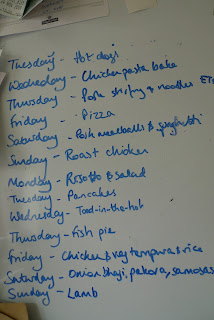 Tuesday - Hot dogs
Wednesday - Chicken pasta bake
Thursday - Pork stirfry & noodles ETC
Friday - Pizza
Saturday - Pork meatballs & spaghetti
Sunday - Roast chicken
Monday - Risotto & salad
Tuesday - Pancakes
Wednesday - Toad-in-the-hole
Thursday - Fish pie
Friday - Chicken & veg tempura & rice
Saturday - Onion bhaji, pakora, samosas
Sunday - Lamb